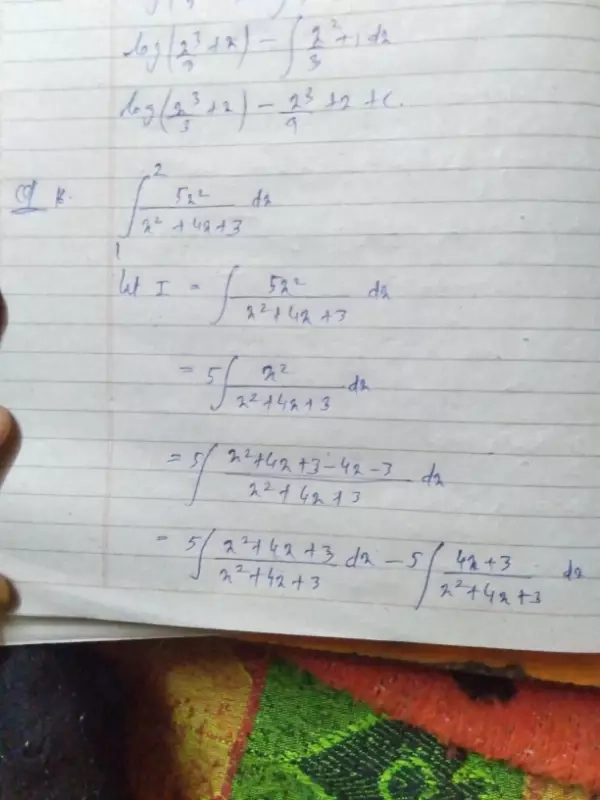 log(x³/3 + x) - ∫ x²/3 + 1 dx
log(x³/3 + x) - x³/9 + x + c.
Q 8. ∫₁² 5x²/(x² + 4x + 3) dx
let I = ∫ 5x²/(x² + 4x + 3) dx
= 5∫ x²/(x² + 4x + 3) dx
= 5∫ (x² + 4x + 3 - 4x - 3)/(x² + 4x + 3) dx
= 5∫ (x² + 4x + 3)/(x² + 4x + 3) dx - 5∫ (4x + 3)/(x² + 4x + 3) dx